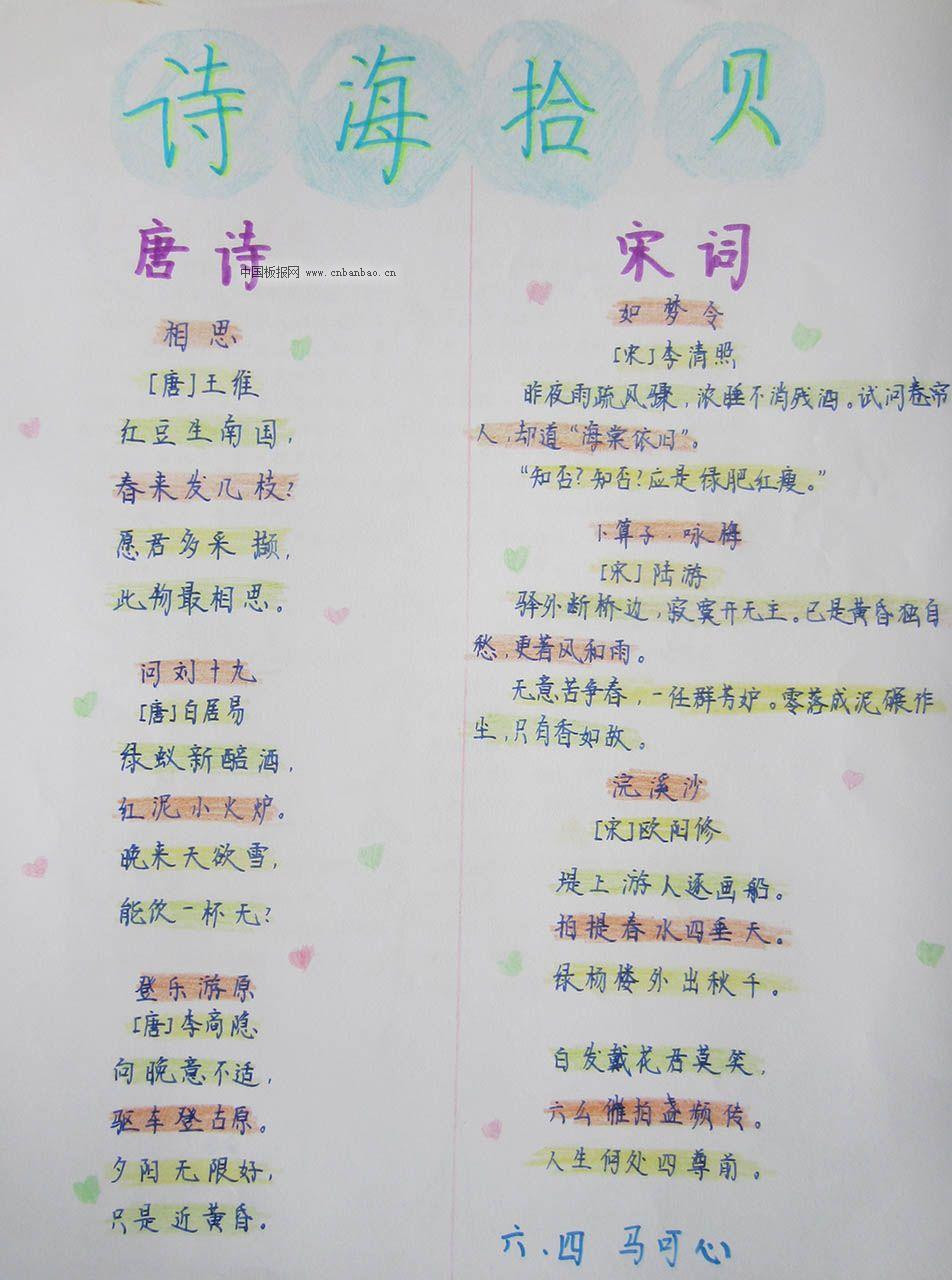 诗海拾贝
唐诗
中国板报网 www.cnbanbao.cn
相思
[唐]王维
红豆生南国,
春来发几枝?
愿君多采撷,
此物最相思。
问刘十九
[唐]白居易
绿蚁新醅酒,
红泥小火炉。
晚来天欲雪,
能饮一杯无?
登乐游原
[唐]李商隐
向晚意不适,
驱车登古原。
夕阳无限好,
只是近黄昏。
宋词
如梦令
[宋]李清照
昨夜雨疏风骤,浓睡不消残酒。试问卷帘
人,却道“海棠依旧”。
“知否?知否?应是绿肥红瘦。”
卜算子·咏梅
[宋]陆游
驿外断桥边,寂寞开无主。已是黄昏独自
愁,更著风和雨。
无意苦争春,一任群芳妒。零落成泥碾作
尘,只有香如故。
浣溪沙
[宋]欧阳修
堤上游人逐画船。
拍提春水四垂天。
绿杨楼外出秋千。
白发戴花君莫笑,
六么催拍盏频传。
人生何处四尊前。
六.四 马可心